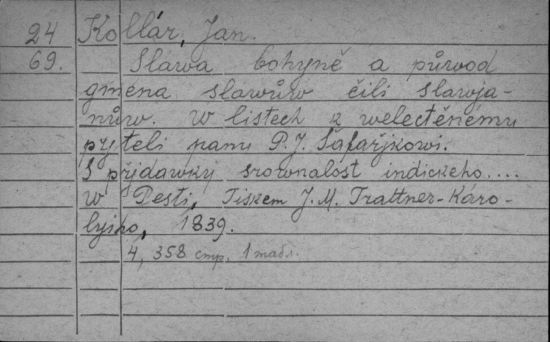 24
69.
Kollár, Jan.
Sláwa bohyně a půwod
gména slawůw čili slawja-
nůw. W listech k welectěnému
přjteli panu P. J. Šafařjkowi.
S přjdawky srownalost indického....
W Pešti, Tiskem J. M. Trattner-Káro-
lyiho, 1839.
4, 358 стр. 1 табл.